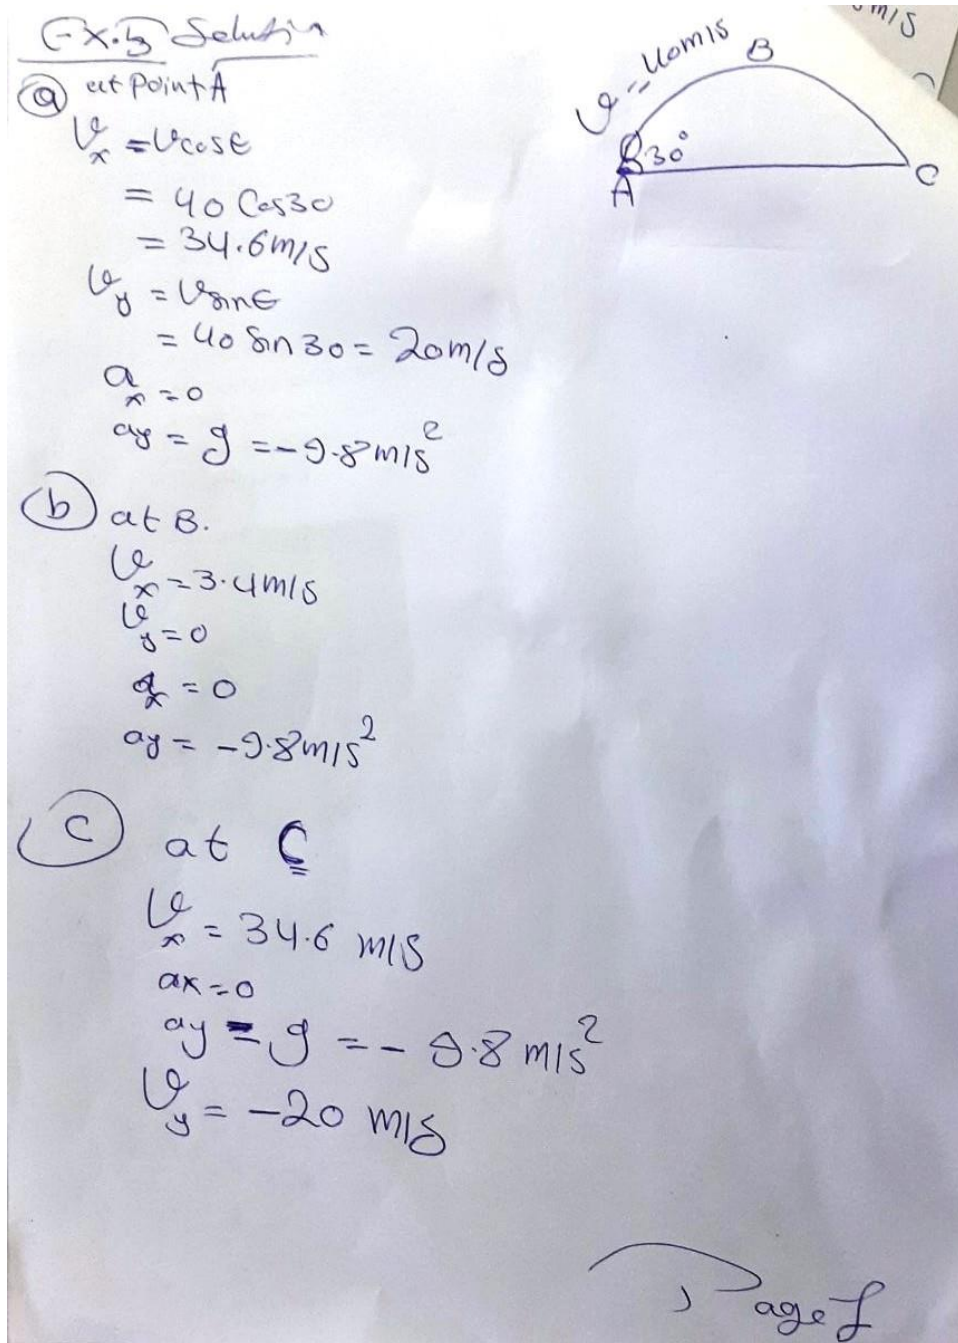 Ex.3 Solution
a at Point A
Vx = Vcosθ
= 40 Cos30
= 34.6m/s
Vy = Vsinθ
= 40 Sin 30 = 20m/s
ax = 0
ay = g = -9.8m/s²
b at B.
Vx = 3.4m/s
Vy = 0
ax = 0
ay = -9.8m/s²
c at C
Vx = 34.6 m/s
ax = 0
ay = g = - 9.8 m/s²
Vy = -20 m/s
m/s
V = 40m/s
B
30°
A
C
Page